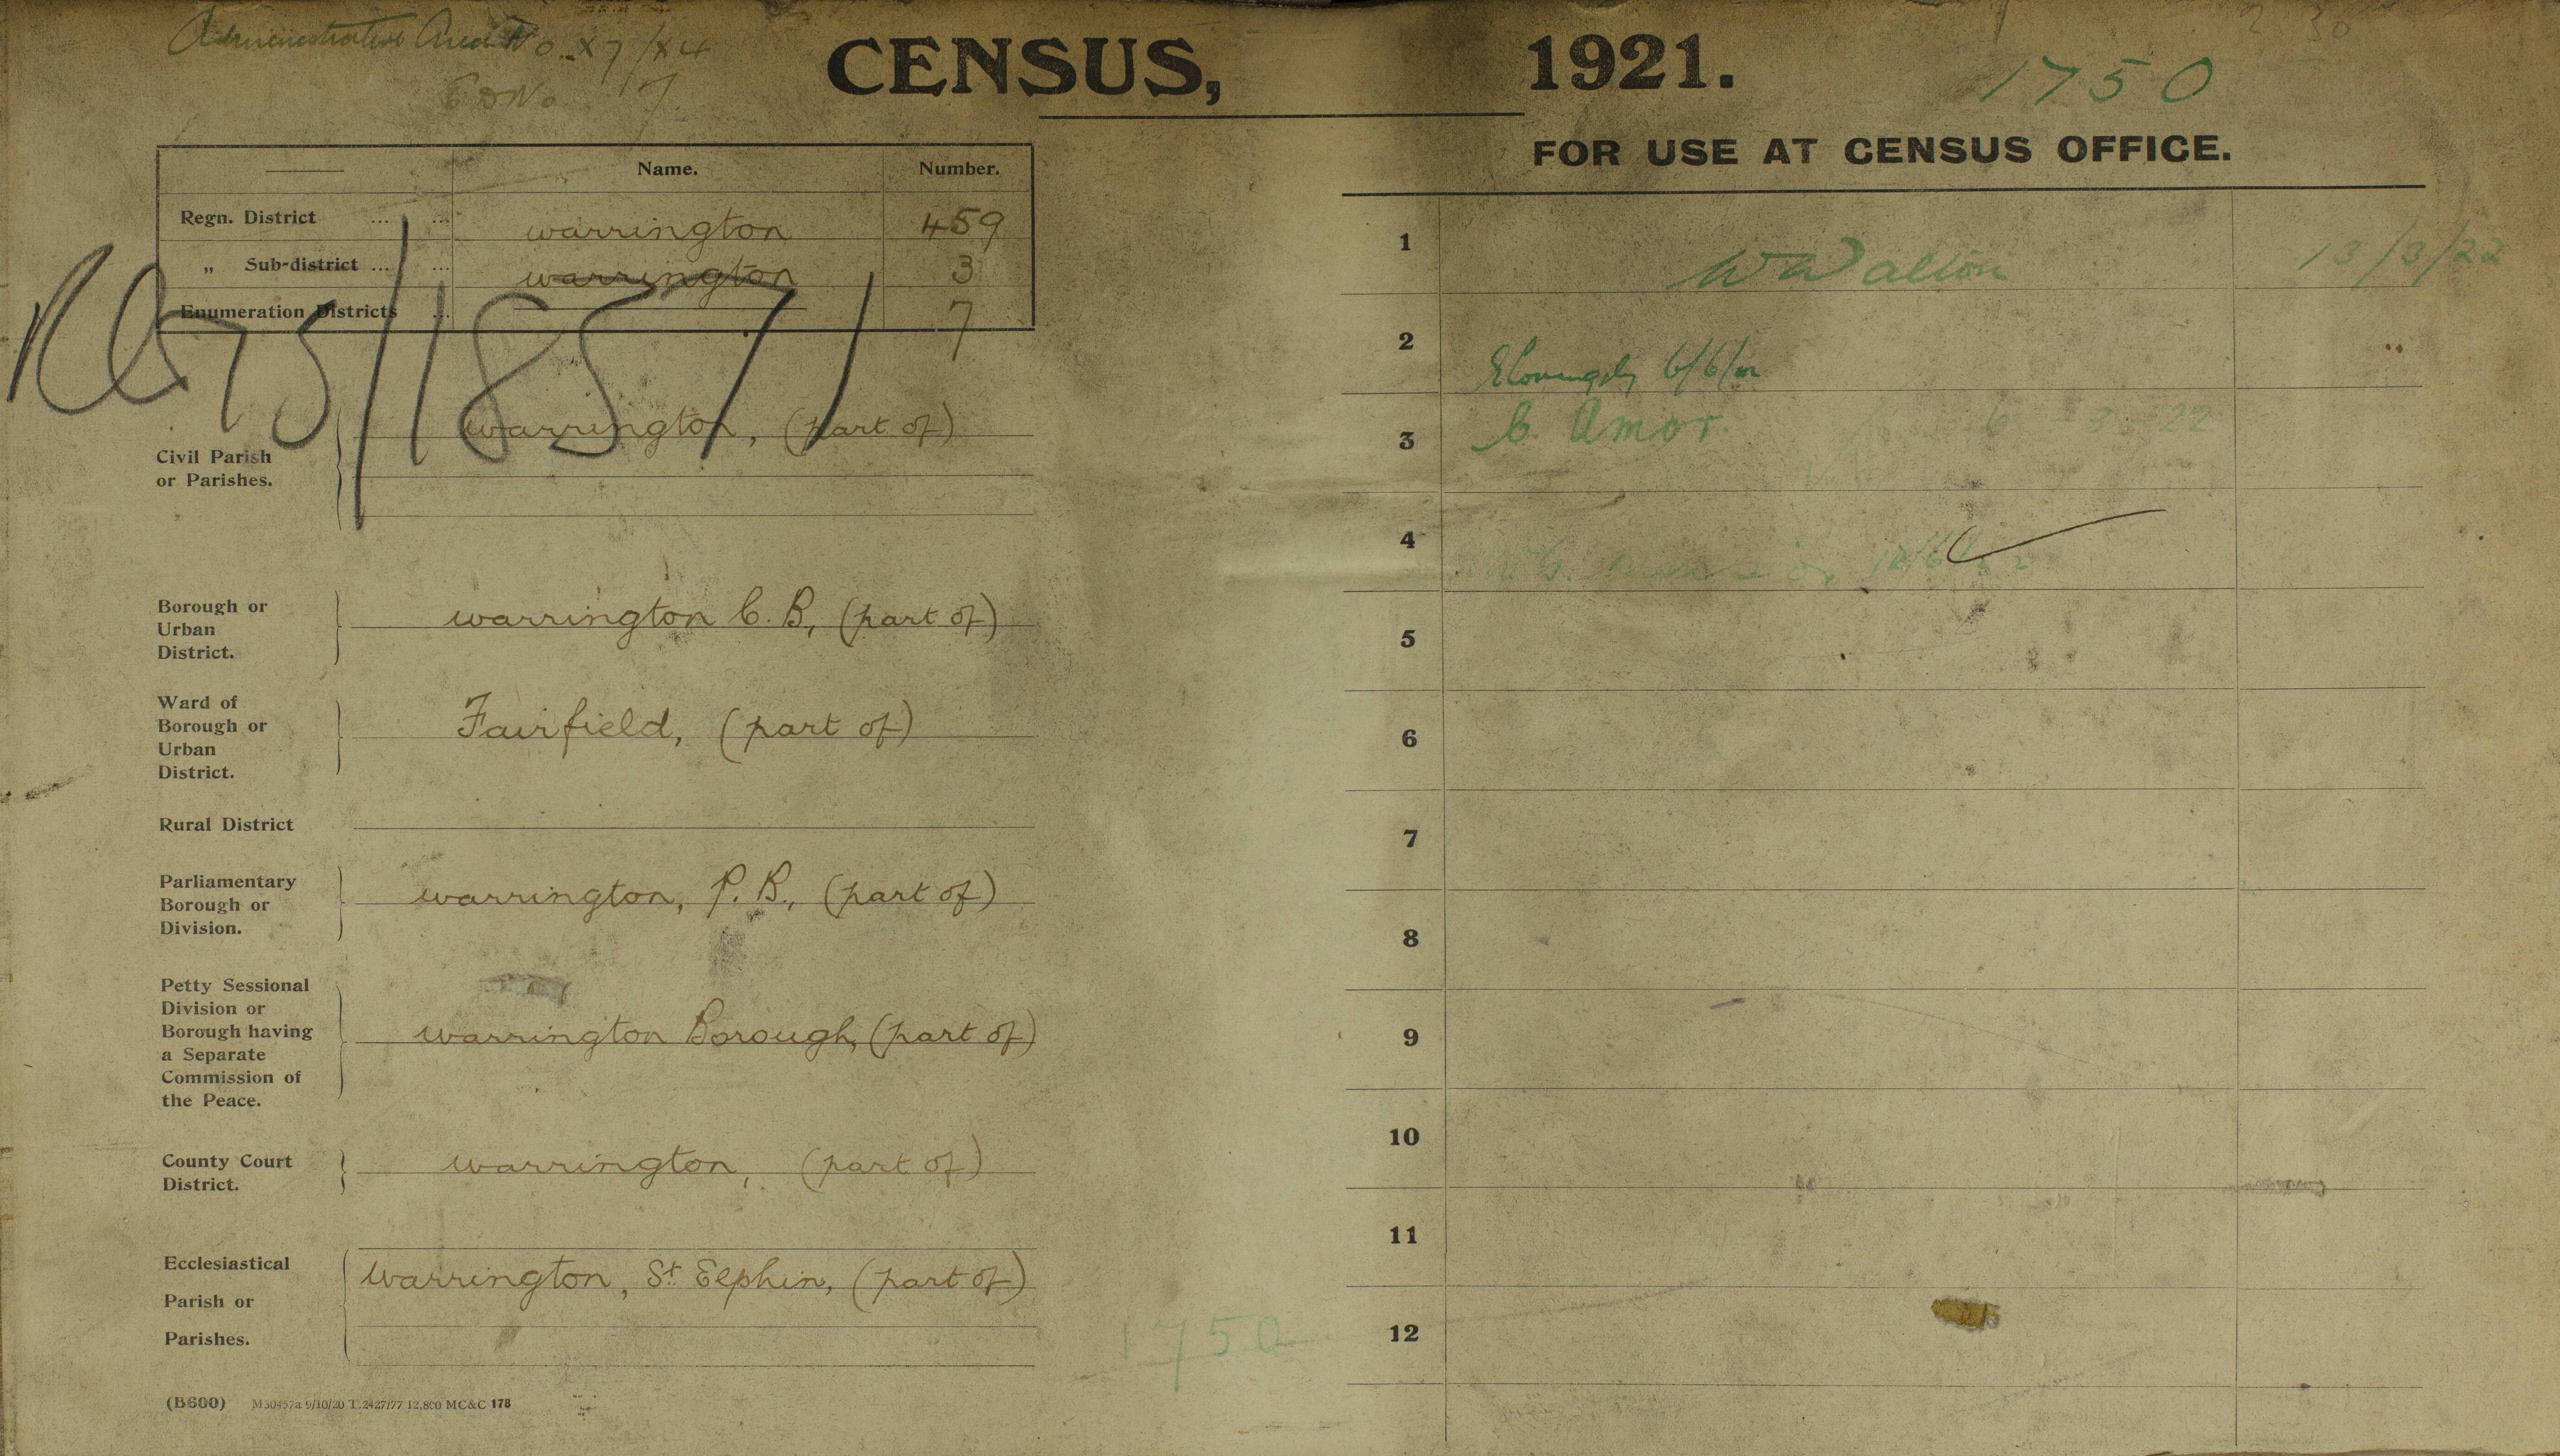 Administrative Area No. X7/X4
CENSUS, 1921.
1750
ED No 7
FOR USE AT CENSUS OFFICE.
Name. Number.
Regn. District ... ... warrington 459
„ Sub-district ... ... warrington 3
Enumeration Districts ... 7
RG 15/18571
Civil Parish or Parishes. warrington, (part of)
Borough or Urban District. warrington C. B, (part of)
Ward of Borough or Urban District. Fairfield, (part of)
Rural District
Parliamentary Borough or Division. warrington, P. B., (part of)
Petty Sessional Division or Borough having a Separate Commission of the Peace. warrington Borough, (part of)
County Court District. warrington, (part of)
Ecclesiastical Parish or Parishes. Warrington, St Elphin, (part of)
(B600) M30457a 9/10/20 T.2427/77 12,800 MC&C 178
1750
1 W Walton 13/3/22
2 6/6/22
3 C. Amor. 6-3-22
4
5
6
7
8
9
10
11
12